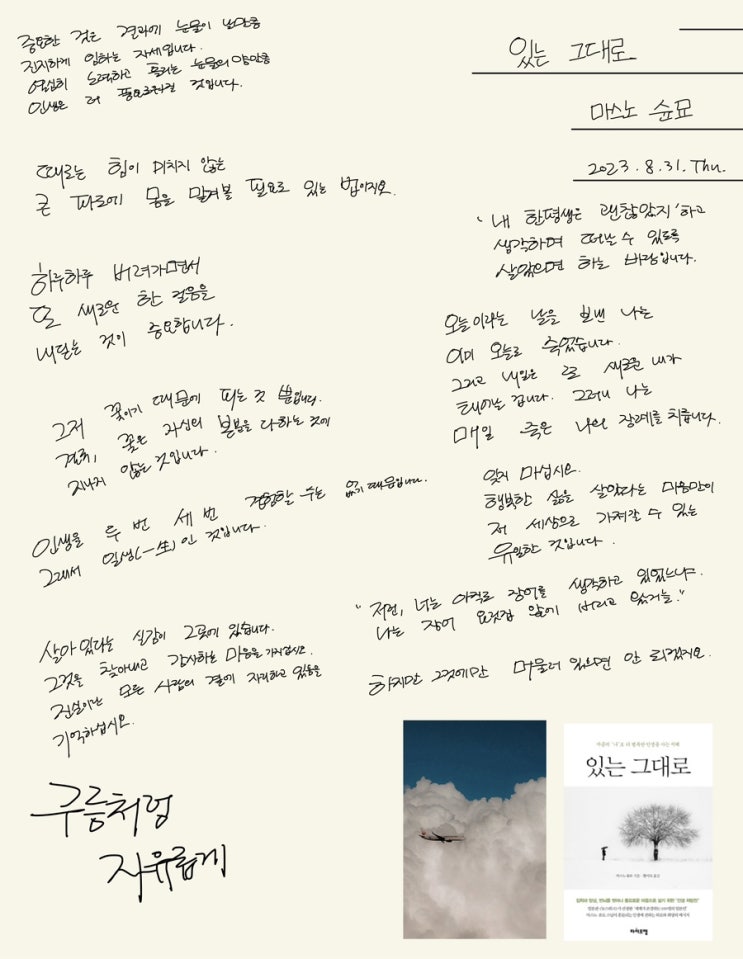 있는 그대로
마스노 슌묘
2023. 8. 31. Thu.
중요한 것은 결과에 눈물이 날만큼
진지하게 임하는 자세입니다.
열심히 노력하고 흘리는 눈물의 양만큼
인생은 더 풍요로워질 것입니다.
때로는 힘이 미치지 않는
큰 파도에 몸을 맡겨볼 필요도 있는 법이지요.
하루하루 버려가면서
또 새로운 한 걸음을
내딛는 것이 중요합니다.
그저 꽃이기 때문에 피는 것 뿐입니다.
결국, 꽃은 자신의 본분을 다하는 것에
지나지 않는 것입니다.
인생을 두 번 세 번 경험할 수는 없기 때문입니다.
그래서 일생(一生)인 것입니다.
살아 있다는 실감이 그곳에 있습니다.
그것을 찾아내고 감사하는 마음을 가지십시오.
진실이란 모든 사람의 곁에 자리하고 있음을
기억하십시오.
구름처럼
자유롭게
'내 한평생은 괜찮았지'하고
생각하며 떠날 수 있도록
살았으면 하는 바람입니다.
오늘이라는 날을 보낸 나는
이미 오늘로 죽었습니다.
그리고 내일은 또 새로운 내가
태어나는 겁니다. 그러니 나는
매일 죽은 나의 장례를 치릅니다.
잊지 마십시오.
행복한 삶을 살았다는 마음만이
저 세상으로 가져갈 수 있는
유일한 것입니다.
"저런, 너는 아직도 장어를 생각하고 있었느냐.
나는 장어 요릿집 앞에 버리고 왔거늘."
하지만 그것에만 머물러 있으면 안 되겠지요.
있는 그대로
마스노 슌묘 지음